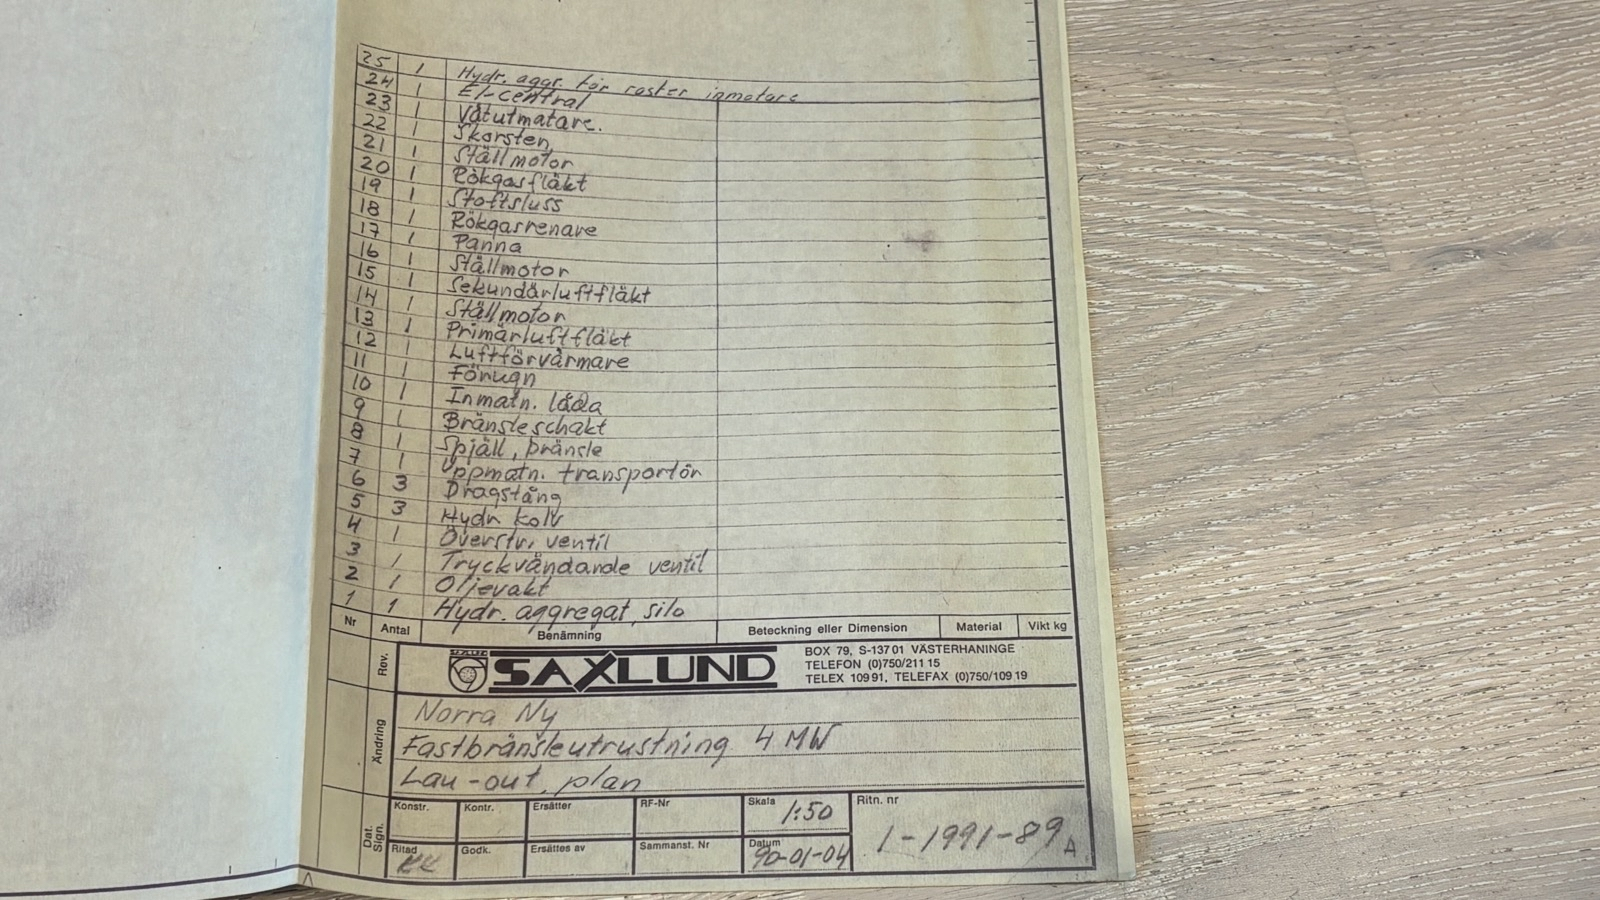 25 1 Hydr. aggr. för roster inmatare
24 1 El-central
23 1 Våtutmatare.
22 1 Skorsten
21 1 Ställmotor
20 1 Rökgasfläkt
19 1 Stoftsluss
18 1 Rökgasrenare
17 1 Panna
16 1 Ställmotor
15 1 Sekundärluftfläkt
14 1 Ställmotor
13 1 Primärluftfläkt
12 1 Luftförvärmare
11 1 Förugn
10 1 Inmatn. låda
9 1 Bränsleschakt
8 1 Spjäll, bränsle
7 1 Uppmatn. transportör
6 3 Dragstång
5 3 Hydr. kolv
4 1 Överstr. ventil
3 1 Tryckvändande ventil
2 1 Oljevakt
1 1 Hydr. aggregat, silo
Nr Antal Benämning Beteckning eller Dimension Material Vikt kg
Rev.
SAXLUND
SAXLUND
BOX 79, S-137 01 VÄSTERHANINGE
TELEFON (0)750/211 15
TELEX 109 91, TELEFAX (0)750/109 19
Ändring
Norra Ny
Fastbränsleutrustning 4 MW
Lay-out, plan
Dat. Sign.
Konstr. Kontr. Ersätter RF-Nr Skala 1:50 Ritn. nr
1-1991-89 A
Ritad KK Godk. Ersättes av Sammanst. Nr Datum 90-01-04